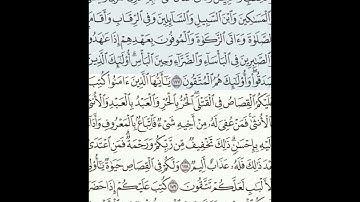 ٱلۡمَسَٰكِينَ وَٱبۡنَ ٱلسَّبِيلِ وَٱلسَّآئِلِينَ وَفِي ٱلرِّقَابِ وَأَقَامَ
ٱلصَّلَوٰةَ وَءَاتَى ٱلزَّكَوٰةَ وَٱلۡمُوفُونَ بِعَهۡدِهِمۡ إِذَا عَٰهَدُ
ٱلصَّٰبِرِينَ فِي ٱلۡبَأۡسَآءِ وَٱلضَّرَّآءِ وَحِينَ ٱلۡبَأۡسِۗ أُوْلَٰٓئِكَ ٱلَّذِينَ
صَدَقُواْۖ وَأُوْلَٰٓئِكَ هُمُ ٱلۡمُتَّقُونَ ١٧٧ يَٰٓأَيُّهَا ٱلَّذِينَ ءَامَنُواْ كُتِبَ
عَلَيۡكُمُ ٱلۡقِصَاصُ فِي ٱلۡقَتۡلَىۖ ٱلۡحُرُّ بِٱلۡحُرِّ وَٱلۡعَبۡدُ بِٱلۡعَبۡدِ وَٱلۡأُنثَىٰ
ٱلۡأُنثَىٰۚ فَمَنۡ عُفِيَ لَهُۥ مِنۡ أَخِيهِ شَيۡءٞ فَٱتِّبَاعُۢ بِٱلۡمَعۡرُوفِ وَأَدَآءٌ
إِلَيۡهِ بِإِحۡسَٰنٖۗ ذَٰلِكَ تَخۡفِيفٞ مِّن رَّبِّكُمۡ وَرَحۡمَةٞۗ فَمَنِ ٱعۡتَدَىٰ
بَعۡدَ ذَٰلِكَ فَلَهُۥ عَذَابٌ أَلِيمٞ ١٧٨ وَلَكُمۡ فِي ٱلۡقِصَاصِ حَيَوٰةٞ يَٰٓأُوْلِي
ٱلۡأَلۡبَٰبِ لَعَلَّكُمۡ تَتَّقُونَ ١٧٩ كُتِبَ عَلَيۡكُمۡ إِذَا حَضَرَ